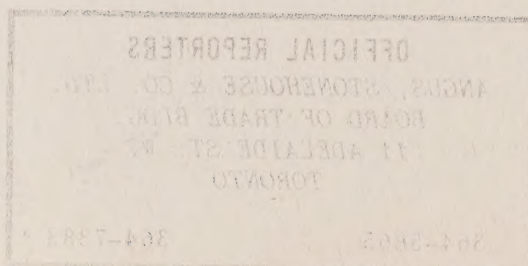 OFFICIAL REPORTERS
ANGUS, STONEHOUSE & CO. LTD.
BOARD OF TRADE BLDG.
11 ADELAIDE ST. W.
TORONTO
364-5865 364-7383